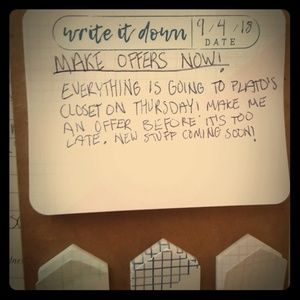 write it down
9/4/18
DATE
MAKE OFFERS NOW!
EVERYTHING IS GOING TO PLATO'S
CLOSET ON THURSDAY! MAKE ME
AN OFFER BEFORE IT'S TOO
LATE. NEW STUFF COMING SOON!